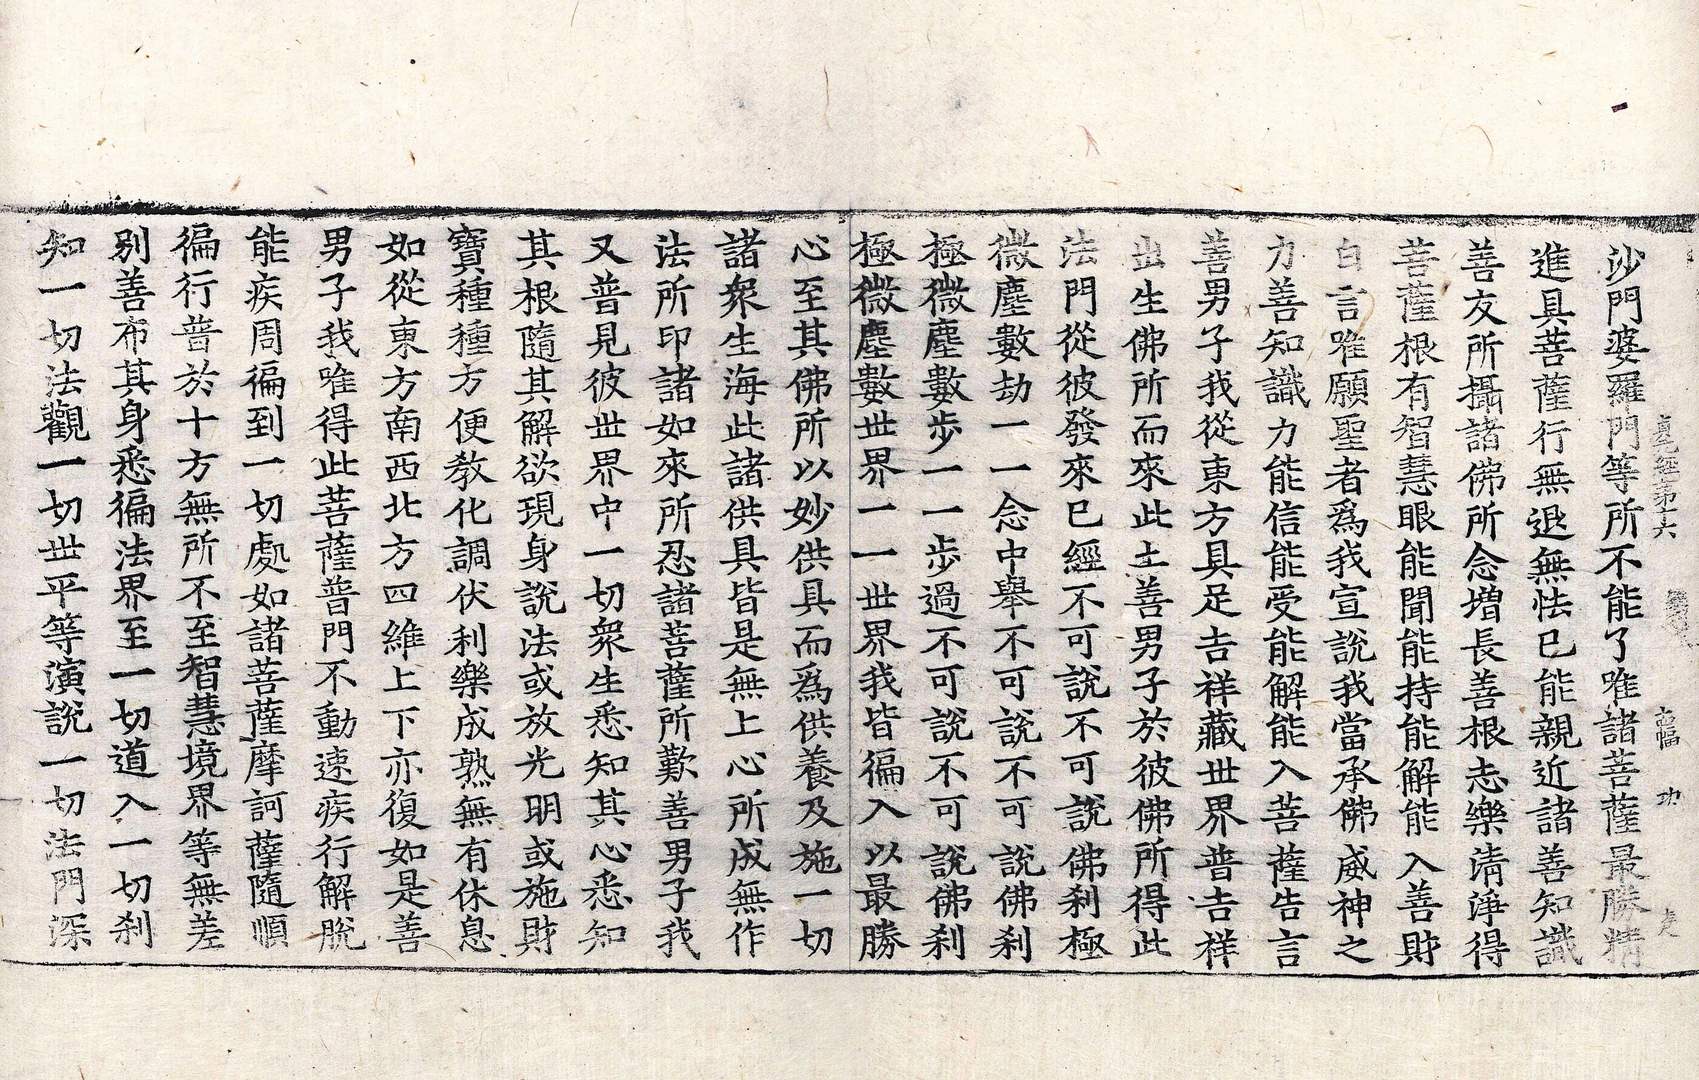 沙門婆羅門等所不能了唯諸菩薩最勝精
進具菩薩行無退無怯已能親近諸善知識
善友所攝諸佛所念增長善根志樂清淨得
菩薩根有智慧眼能聞能持能解能入善財
白言唯願聖者為我宣說我當承佛威神之
力善知識力能信能受能解能入菩薩告言
善男子我從東方具足吉祥藏世界普吉祥
出生佛所而來此土善男子於彼佛所得此
法門從彼發來已經不可說不可說佛刹極
微塵數劫一一念中舉不可說不可說佛刹
極微塵數步一一步過不可說不可說佛刹
極微塵數世界一一世界我皆徧入以最勝
心至其佛所以妙供具而為供養及施一切
諸衆生海此諸供具皆是無上心所成無作
法所印諸如來所忍諸菩薩所歎善男子我
又普見彼世界中一切衆生悉知其心悉知
其根隨其解欲現身說法或放光明或施財
寶種種方便教化調伏利樂成熟無有休息
如從東方南西北方四維上下亦復如是善
男子我唯得此菩薩普門不動速疾行解脫
能疾周徧到一切處如諸菩薩摩訶薩隨順
徧行普於十方無所不至智慧境界等無差
别善布其身悉徧法界至一切道入一切刹
知一切法觀一切世平等演說一切法門深